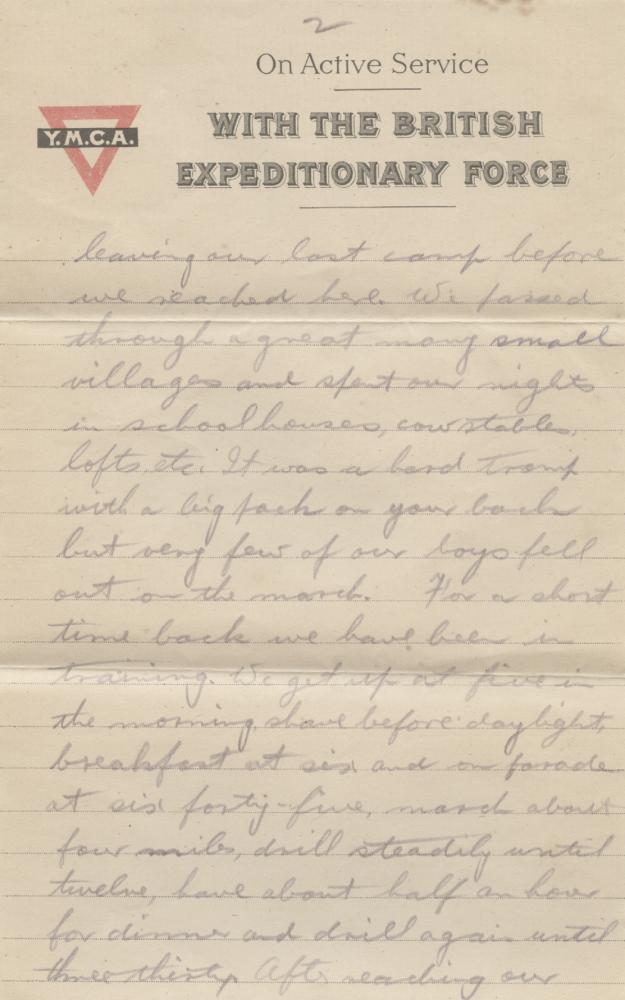 2
On Active Service
WITH THE BRITISH
EXPEDITIONARY FORCE
Y.M.C.A.
leaving our last camp before
we reached here. We passed
through a great many small
villages and spent our nights
in schoolhouses, cowstables,
lofts etc. It was a hard tramp
with a big pack on your back
but very few of our boys fell
out on the march. For a short
time back we have been in
training. We get up at five in
the morning, shave before daylight,
breakfast at six and on parade
at six forty-five, march about
four miles, drill steadily until
twelve, have about half an hour
for dinner and drill again until
three thirty. After reaching our